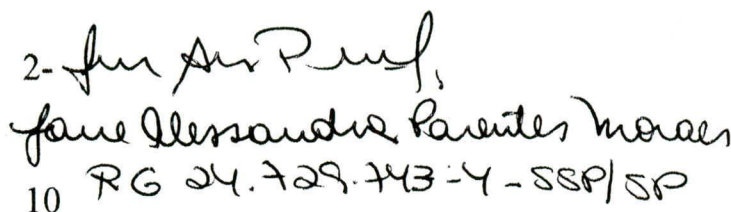 2-
Jane Alessandra Parentes Moraes
10 RG 24.729.743-4-SSP/SP